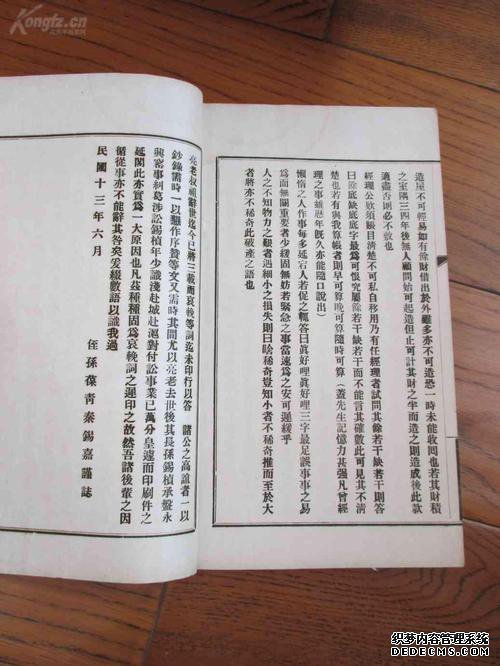 Kongfz.cn
造屋不可輕易如有餘財借出於外雖多亦不可造恐一時未能收囘也若其財積
之室隅三四年後無人顧問始可起造但止可計其財之半而造之則造成後此款
適盡否則必不敷也
經理公欵須賬目清楚不可私自移用乃有任經理者試問其餘若干缺若干則答
曰除底缺底底字最爲可恨究屬餘若干缺若干而不能言數此可見其不清
楚也若有與我算帳者則早可算晚可算隨時可算(蓋先生記憶力甚强凡曾經
理之事雖歷年旣久亦能隨口說出)
懶惰之人作事每多延宕人若促之輒答曰眞好哩眞好哩三字最足誤事事之易
爲而無關重要者少緩固無妨若緊急之事當速爲之安可遲緩乎
人之不知物力之艱者遇細小之損失則曰唅稀奇豈知小者不稀奇推而至於大
者將亦不稀奇此破產之語也
亮老叔祖辭世迄今已將三載而哀輓等詞迄未印行以答 諸公之高誼者一以
鈔錄需時一以懇作序贊等文又需時其間尤以亮老去世後其長孫錫楨承盤永
興窰事糾葛涉訟錫楨年少識淺赴城赴滬對付訟事業已萬分皇遽而印刷件之
延閣此亦實爲一大原因也凡茲種種固爲哀輓詞之遲印之故然吾諸後輩之因
循從事亦不能辭其咎矣爰綴數語以識我過
民國十三年六月
侄孫葆青秦錫嘉謹誌
织梦内容管理系统
DEDECMS.COM